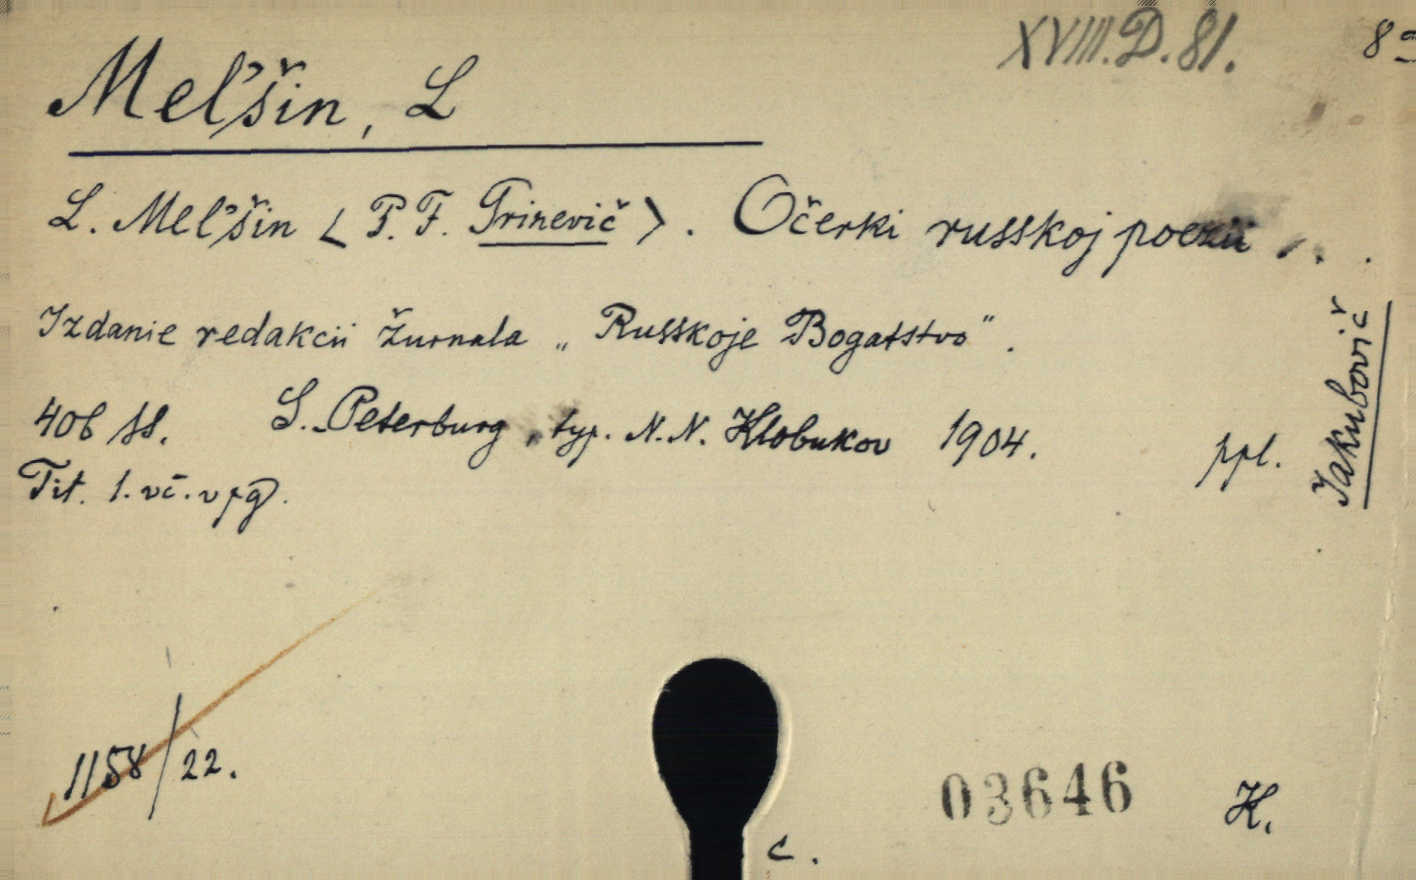 XVIII.D.81. 8°
Mel'šin, L
L. Mel'šin < P. F. Grinevič >. Očerki russkoj poezii . . .
Izdanie redakcii žurnala „Russkoje Bogatstvo".
406 ss. S.-Peterburg, typ. N. N. Klobukov 1904. ppl.
Tit. l. vč. v pg.
Jakubovič
1158/22.
03646 K.
c.